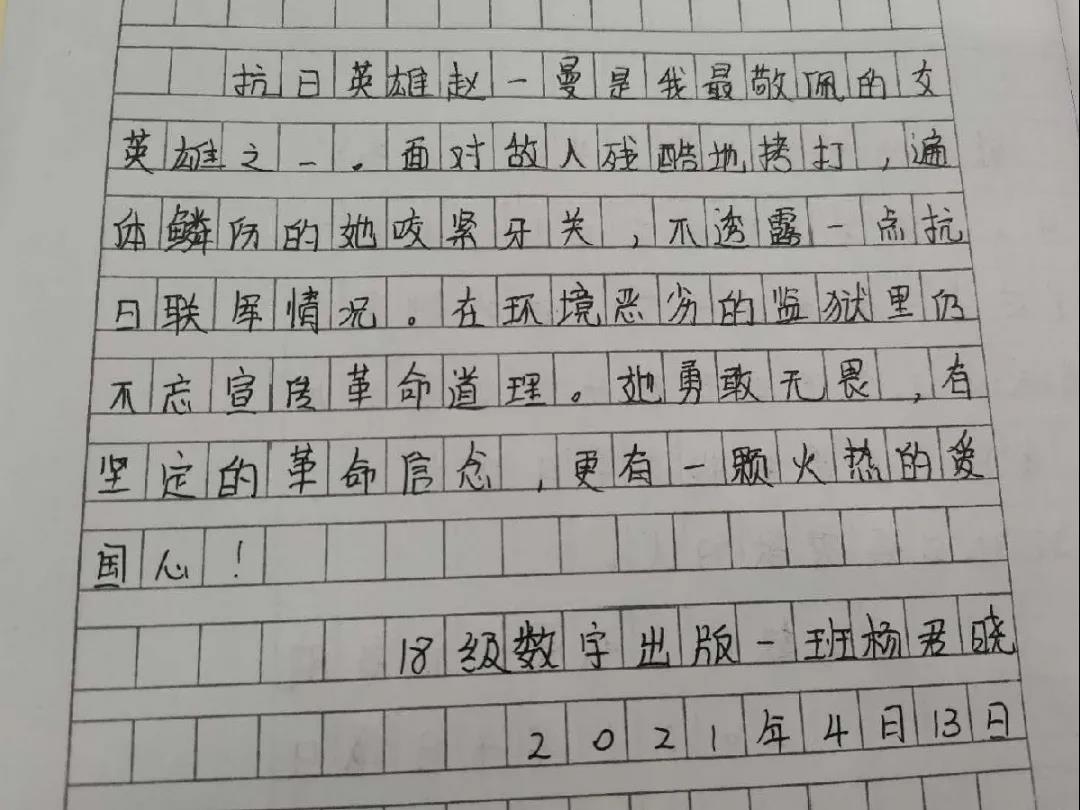 抗日英雄赵一曼是我最敬佩的女
英雄之一。面对敌人残酷地拷打，遍
体鳞伤的她咬紧牙关，不透露一点抗
日联军情况。在环境恶劣的监狱里仍
不忘宣传革命道理。她勇敢无畏，有
坚定的革命信念，更有一颗火热的爱
国心！
18级数字出版一班杨君晓
2021年4月13日